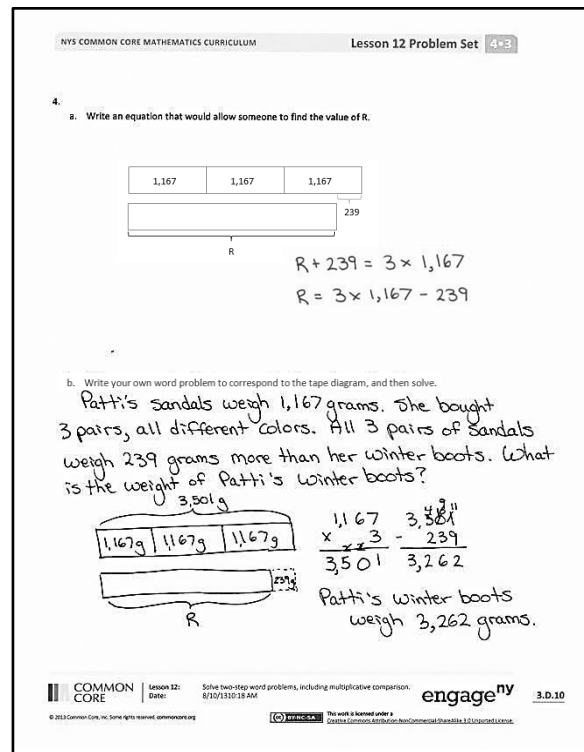 NYS COMMON CORE MATHEMATICS CURRICULUM
Lesson 12 Problem Set 4•3
4.
a. Write an equation that would allow someone to find the value of R.
1,167 1,167 1,167
239
R
R + 239 = 3 × 1,167
R = 3 × 1,167 - 239
b. Write your own word problem to correspond to the tape diagram, and then solve.
Patti's sandals weigh 1,167 grams. She bought
3 pairs, all different colors. All 3 pairs of sandals
weigh 239 grams more than her winter boots. What
is the weight of Patti's winter boots?
3,501g
1,167g 1,167g 1,167g
239g
R
1,167
× 3
3,501
4 9 11
3,501
- 239
3,262
Patti's winter boots
weigh 3,262 grams.
COMMON
CORE
Lesson 12:
Date:
Solve two-step word problems, including multiplicative comparison.
8/10/1310:18 AM
engageny
3.D.10
© 2013 Common Core, Inc. Some rights reserved. commoncore.org
(cc) BY-NC-SA
This work is licensed under a
Creative Commons Attribution-NonCommercial-ShareAlike 3.0 Unported License.